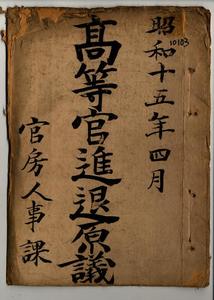 昭和十五年四月
10103
髙等官進退原議
官房人事課